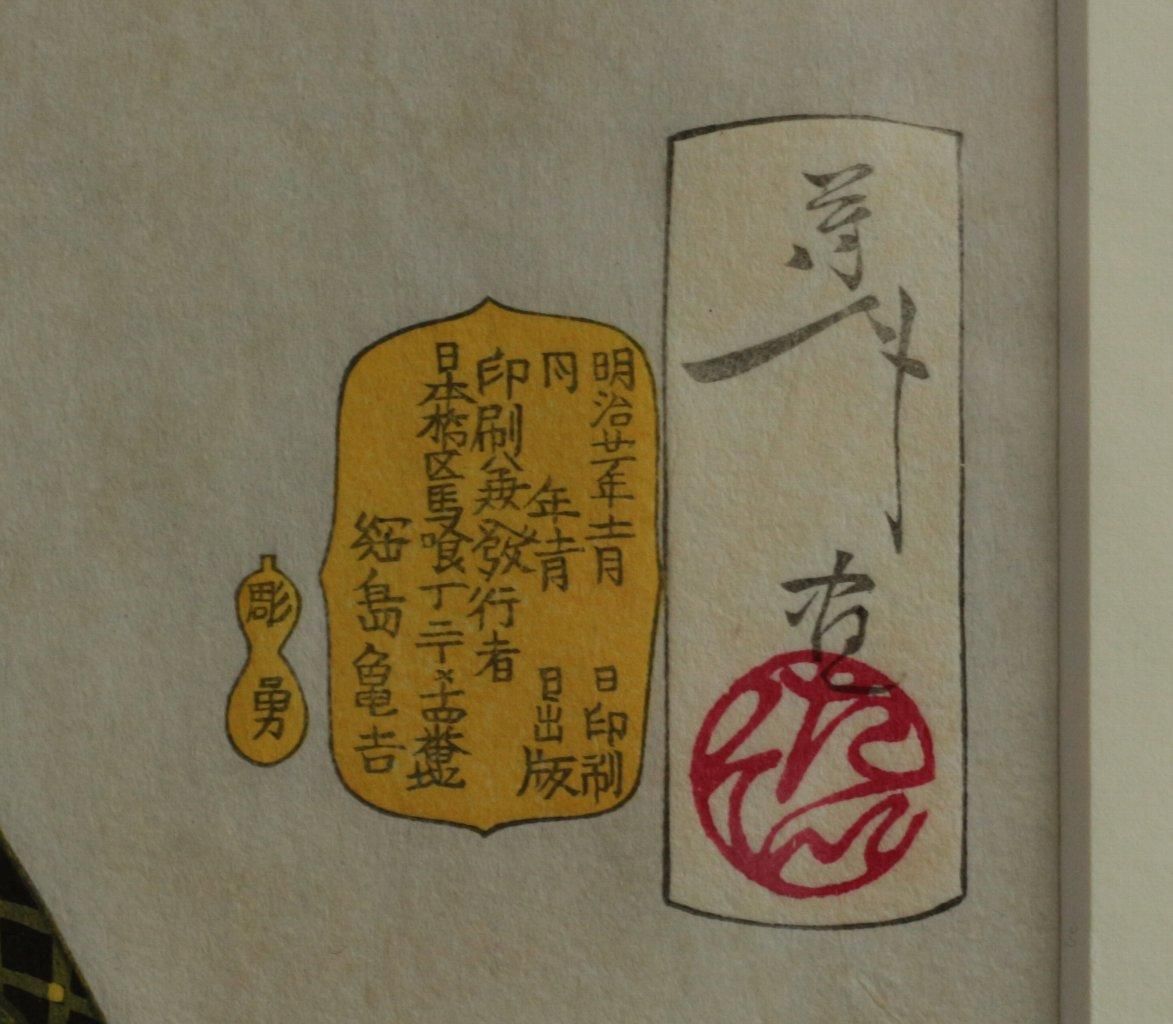 芳年画
明治廿一年十一月 日印刷
同 年十一月 日出版
印刷兼發行者
日本橋区馬喰丁二丁メ十四番地
綱島亀吉
彫勇